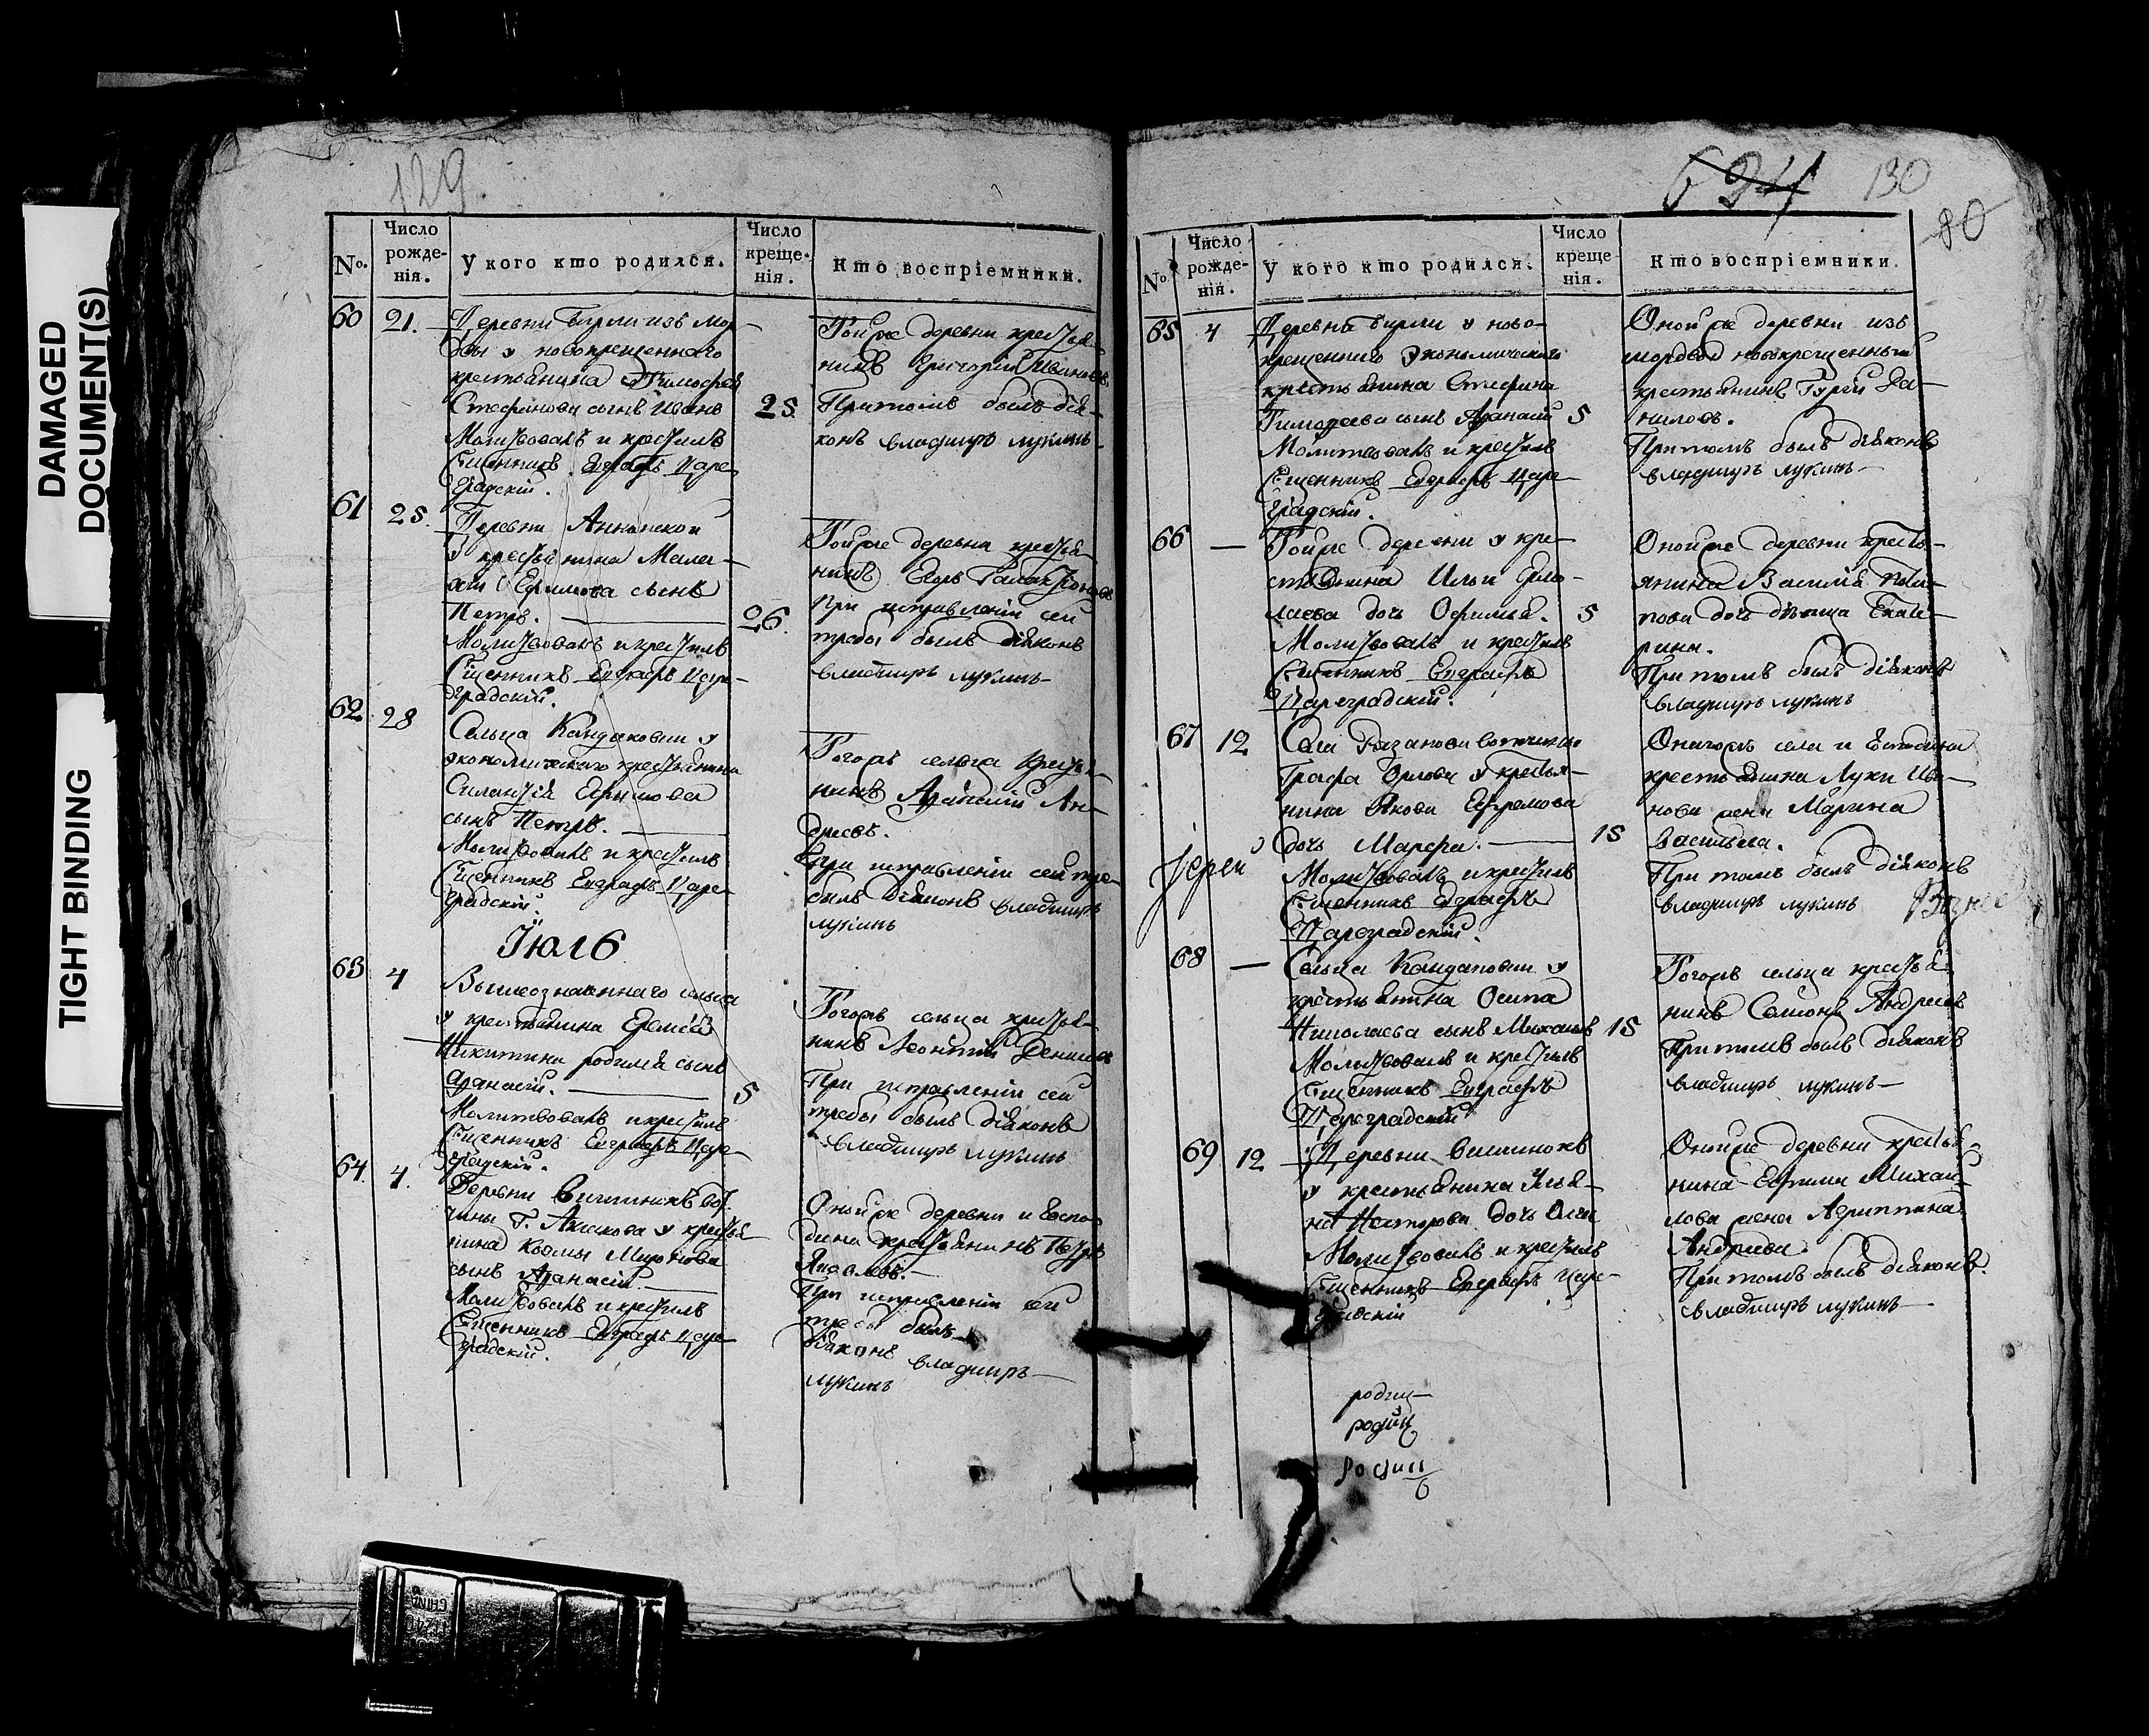 DAMAGED
DOCUMENT(S)
TIGHT BINDING
129
№.
Число
рожде-
нія.
У кого кто родился.
Число
креще-
нія.
Кто воспріемники.
60
21.
Деревни Бирли изъ Мор-
двы у новокрещеннаго
крестьянина Тимофея
Стефанова сынъ Иванъ
25.
Молитвовалъ и крестилъ
Священникъ Евграфъ Царе-
градскій.
Тойже деревни крестья-
нинъ Григорій Ивановъ
Притомъ былъ дія-
конъ владимиръ лукинъ
61
25.
Деревни Анненской
у крестьянина
Ефимова сынъ
Петръ.
26.
Молитвовалъ и крестилъ
Священникъ Евграфъ Царе-
градскій.
Тойже деревни крестья-
нинъ
При исправленіи сей
требы былъ діяконъ
владимиръ лукинъ
62
28
Сельца Кандаковки у
экономическаго крестьянина
Ефимова
сынъ Петръ.
Молитвовалъ и крестилъ
Священникъ Евграфъ Царе-
градскій.
Тогожъ сельца крестья-
нинъ Афанасій Ан-
дреевъ.
При исправленіи сей тре
былъ діяконъ владимиръ
лукинъ
Іюль
63
4
Вышеозначеннаго сельца
у крестьянина Еремѣя
Никитина родился сынъ
Афанасій.
5
Молитвовалъ и крестилъ
Священникъ Евграфъ Царе-
градскій.
Тогожъ сельца крестья-
нинъ Леонтій Денисовъ
При исправленіи сей
требы былъ діяконъ
владимиръ лукинъ
64.
4.
Деревни Вишинокъ вот
чины Г. Аксакова у крестья-
нина Козмы Миронова
сынъ Афанасій.
Молитвовалъ и крестилъ
Священникъ Евграфъ Царе-
градскій.
Онойже деревни и Госпо-
дина крестьянинъ Петръ
Яковлевъ.
При исправленіи сей
требы былъ
діяконъ владимиръ
лукинъ
624
130
80
№
Число
рожде-
нія.
У кого кто родился.
Число
креще
нія.
Кто воспріемники.
65
4
Деревни Бирли у ново-
крещеннаго экономическаго
крестьянина Стефана
Тимофеева сынъ Афанасій
5
Молитвовалъ и крестилъ
Священникъ Евграфъ Царе-
градскій.
Онойже деревни изъ
мордвов новокрещенный
крестьянинъ Гурій Да-
ниловъ.
Притомъ былъ діяконъ
владимиръ лукинъ
66
—
Тойже деревни у кре-
стьянина Ильи
дочь Офимья.
5
Молитвовалъ и крестилъ
Священникъ Евграфъ
Цареградскій.
Онойже деревни кресть-
янина Василія
дочь дѣвица Екате-
рина.
При томъ былъ діяконъ
владимиръ лукинъ
67
12
Села Рязанова вотчины
Графа Орлова у крестья-
нина Якова Ефремова
дочь Марфа.
15
Молитвовалъ и крестилъ
Священникъ Евграфъ
Цареградскій.
Іерей
Оногожъ села и Господина
крестьянина Луки Ива-
нова жена Марина
Васильева.
При томъ былъ діяконъ
владимиръ лукинъ
68
—
Сельца Кандаковки у
крестьянина Осипа
Николаева сынъ Михаилъ
15
Молитвовалъ и крестилъ
Священникъ Евграфъ
Цареградскій
Тогожъ сельца крестья-
нинъ Семіонъ Андреевъ
Притомъ былъ діяконъ
владимиръ лукинъ
69
12
Деревни Вишинокъ
у крестьянина Ульян
на Нестерова дочь
Молитвовалъ и крестилъ
Священникъ Евграфъ Царе-
градскій
Онойже деревни крестья-
нина Михаи-
лова жена Агриппина
Андреева.
При томъ былъ діяконъ.
владимиръ лукинъ
родил